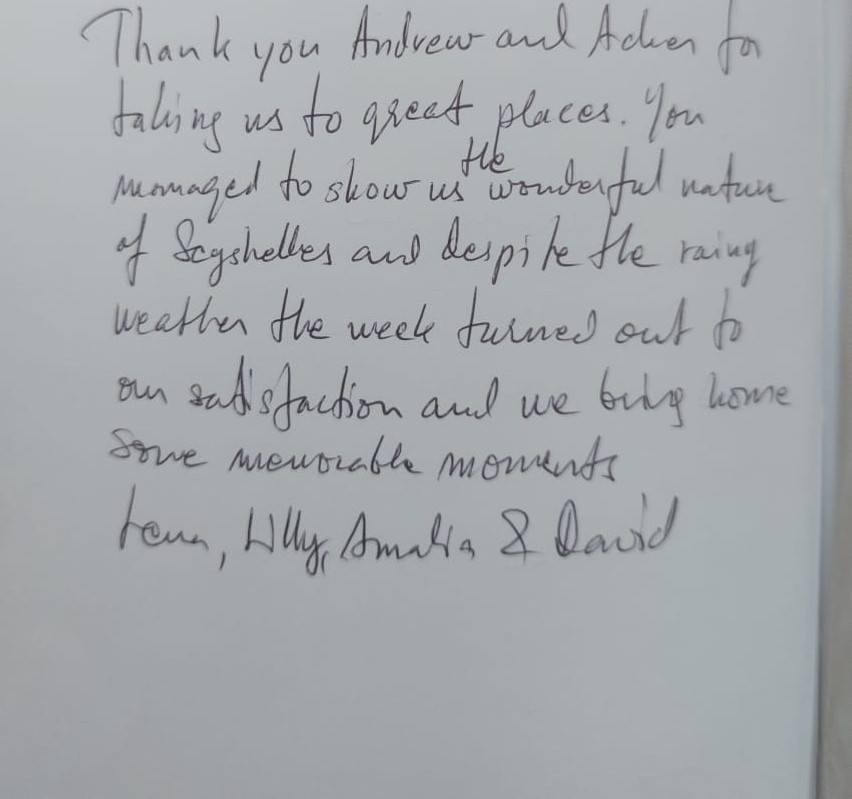 Thank you Andrew and for
taking us to great places. You
managed to show us the wonderful nature
of Seyshelles and despite the rainy
weather the week turned out to
our satisfaction and we bring home
some memorable moments
Lena, Lilly, Amalia & David